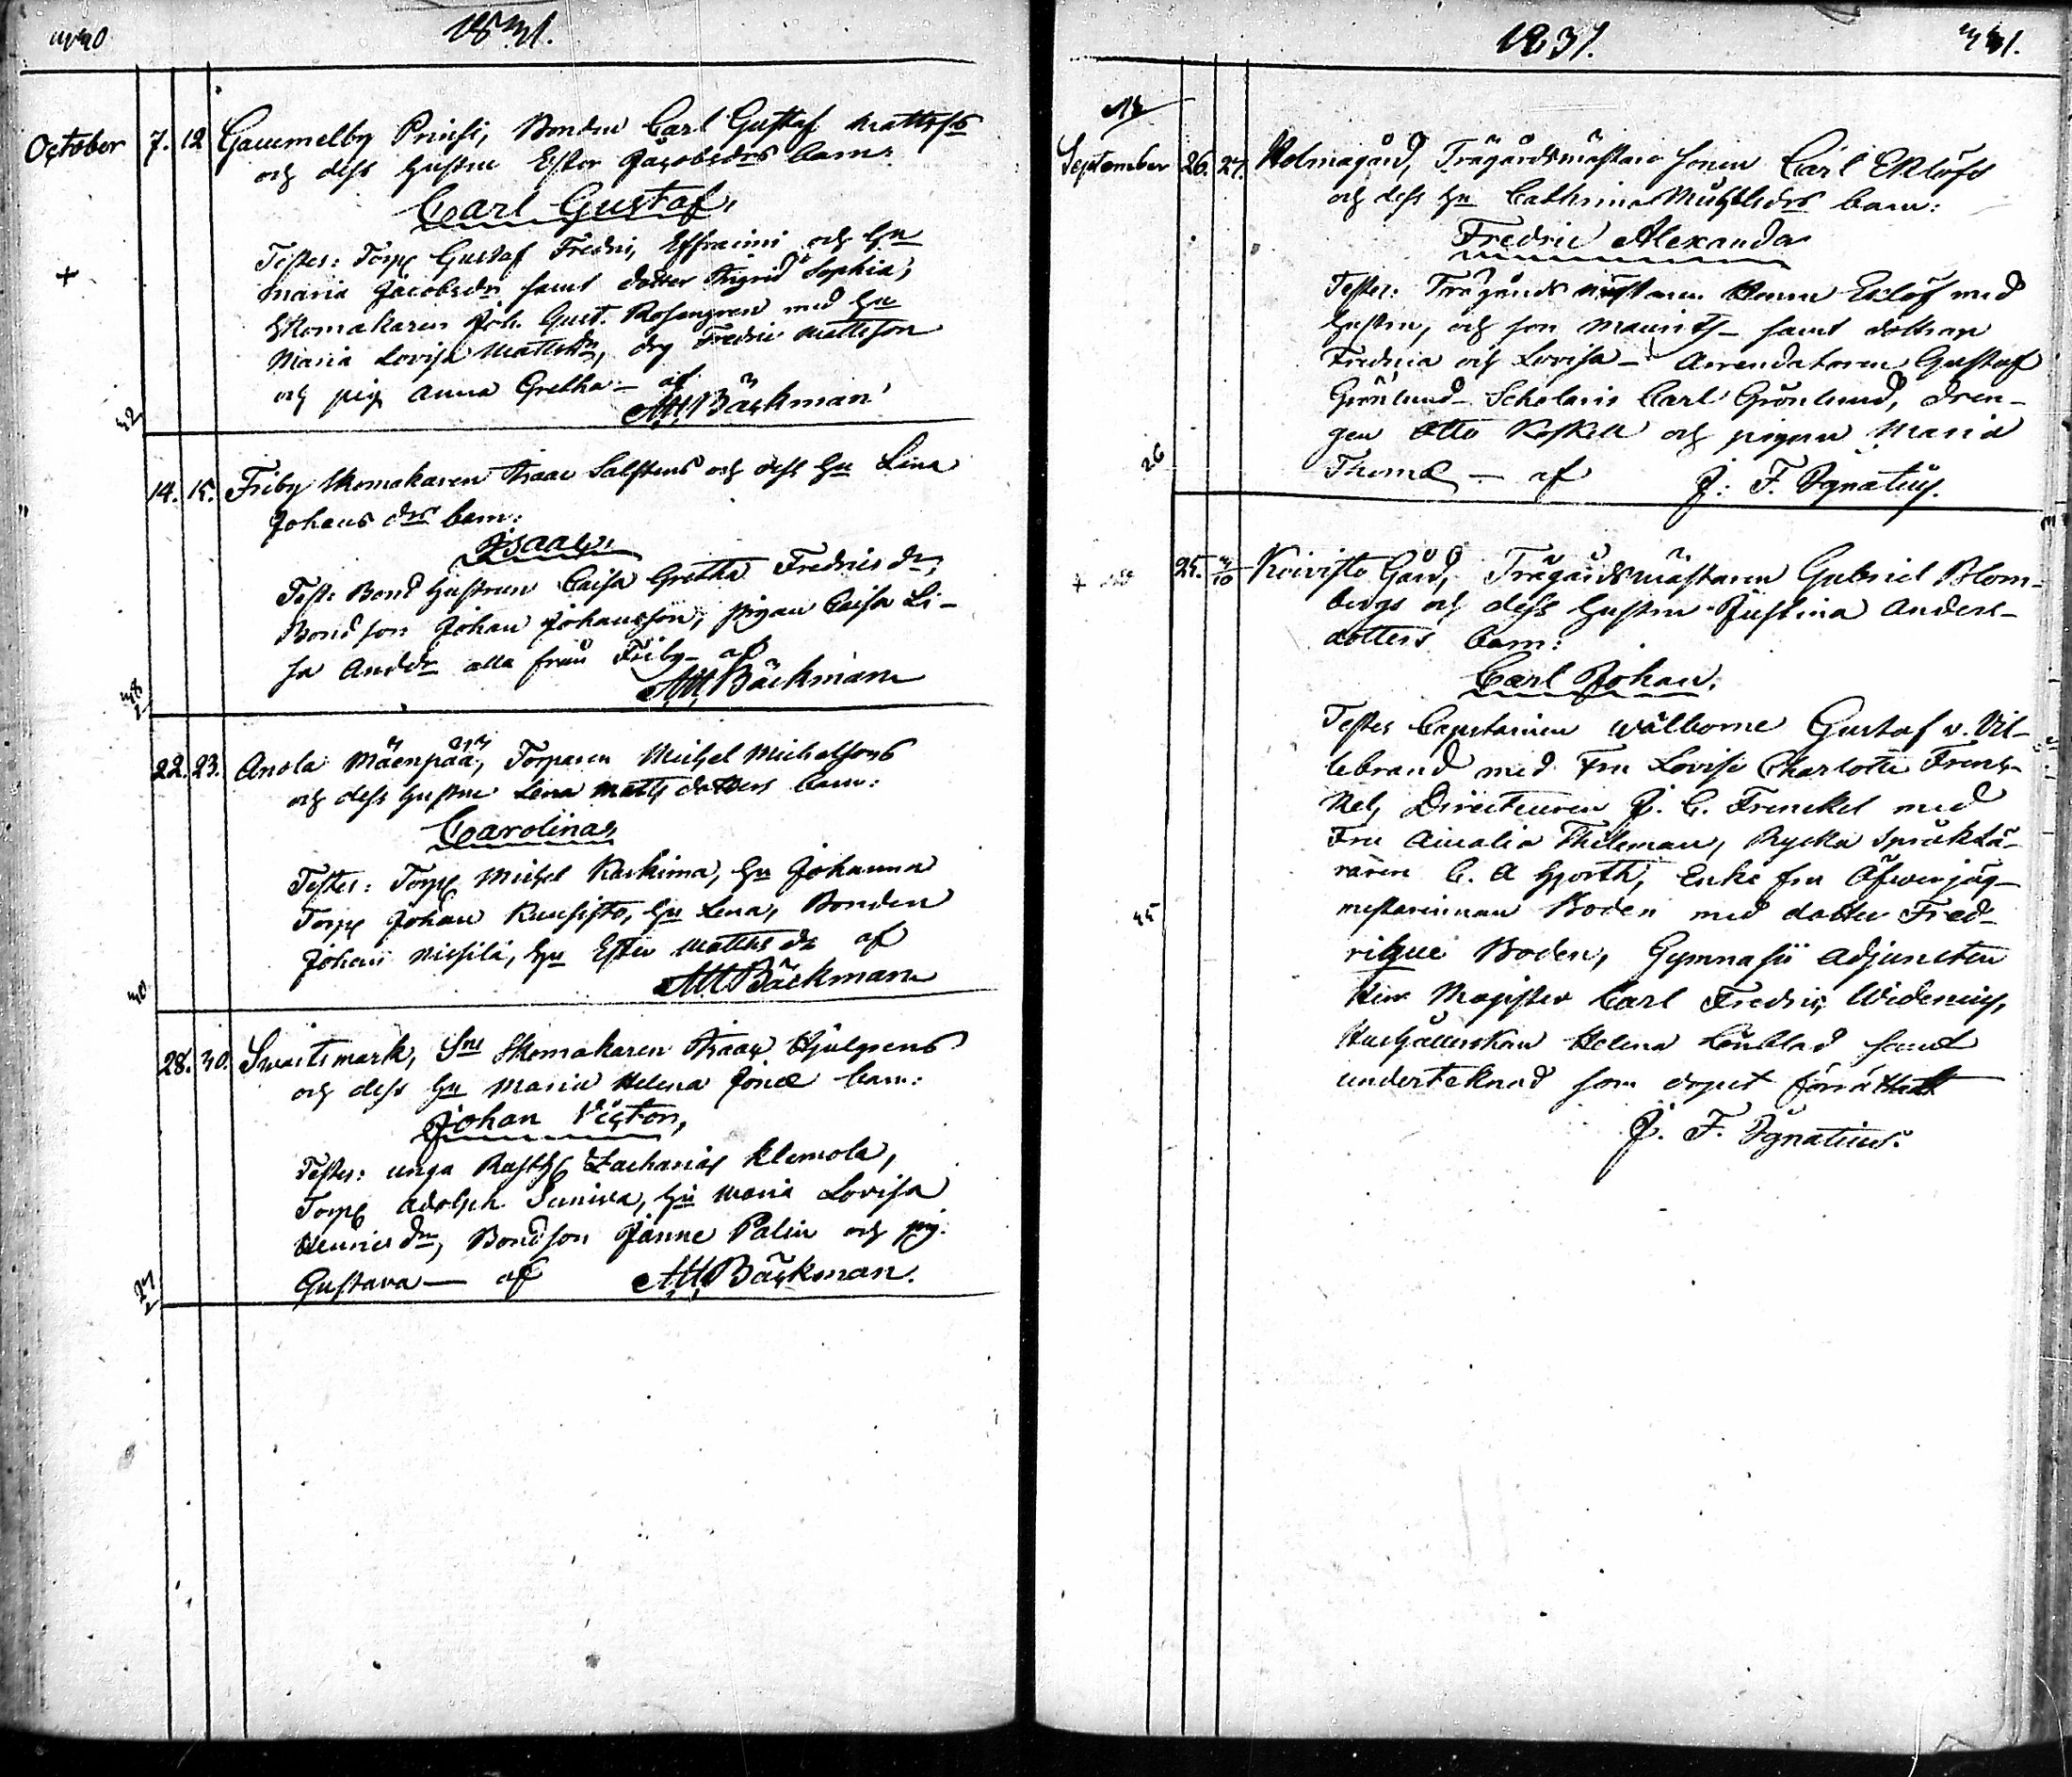 1831.
October 7. 12 Gammelby Prinsi, Bonden Carl Gustaf Mattss
och dess hustru Ester Jacobsdrs barn:
Carl Gustaf,
Testes: Torp Gustaf Fredri, Effraimi och hu
Maria Jacobsdr samt dotter Sigrid Sophia,
Skomakaren Joh. Gust. Rosengren med hu
Maria Lovisa Mattsdr, drg Fredric Mattsson
och pig Anna Gretha - af
A. M. Bäckman
32
14. 15. Friby Skomakaren Isaac Salstens och dess hu Lina
Johans drs barn:
Isaac,
Test: Bond hustrun Caisa Gretha Fredrics dr,
Bond son Johan Johansson, pigan Caisa Li-
sa Andsdr alla från Friby - af
A. M. Bäckman
22. 23. Anola Mäenpää, Torparen Michel Michelsons
och dess hustru Lena Matts dotters barn:
Carolina,
Testes: Torp Michel Karhima, hu Johanna
Torp Johan Kuusisto, hu Lena, Bonden
Johan Missilä, hu Ester Matts dr af
A. M. Bäckman
30
28. 30. Svartsmark, Sne Skomakaren Isaac Hjulgrens
och dess hu Maria Helena Jonæ barn:
Johan Victor,
Testes: unga Rusth Zacharias Klemola,
Torp Adolph Suniva, hu Maria Lovisa
Henrics dr, Bondson Janne Palin och pig.
Gustava - af A. M. Bäckman.
1831. 331.
September 26. 27. Holmagård, Trägårdsmästare sonen Carl Eklöfs
och dess hu Cathrina Michelsdrs barn:
Fredric Alexander
Testes: Trägårdsmästaren Herr Eklöf med
hustru, och son Maurits - samt döttrar
Fredrica och Lovisa - Arrendatoren Gustaf
Grönlund - Scholaris Carl Grönlund, dren-
gen Otto Koskell och pigan Maria
Thomæ - af J. F. Ignatius.
26
25. 3/10 Koivisto Gård, Trägårdsmästaren Gabriel Blom-
bergs och dess hustru Justina Anders-
dotters barn:
Carl Johan,
Testes Capitainen välborne Gustaf v. Vil-
lebrand med Fru Lovise Charlotte Frenc-
kel, Directeuren J. C. Frenckel med
Fru Amalia Thileman, Ryska språklä-
raren C. A Hjorth, Enke fru Öfverjäg-
mestarinnan Boden med dotter Fred-
rique Boden, Gymnasii Adjuncten
Herr Magister Carl Fredric Widenius,
Hushållerskan Helena Lönblad samt
underteknad som dopet förrättat
J. F. Ignatius.